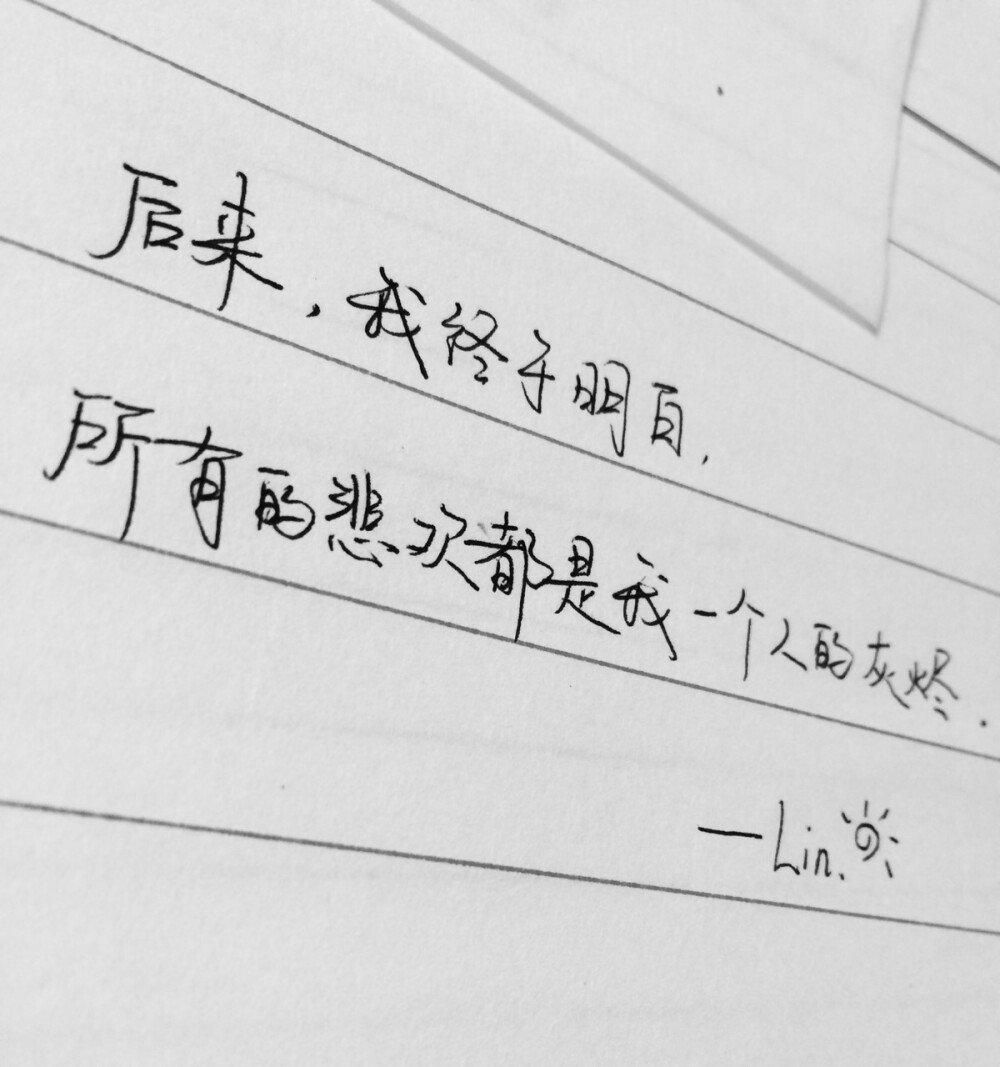 后来，我终于明白，
所有的悲欢都是我一个人的灰烬.
—Lin.